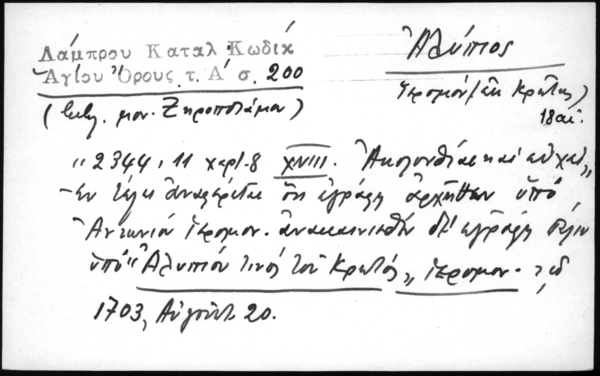 Λάμπρου Καταλ Κωδίκ
Ἁγίου Ὄρους τ. Α΄ σ. 200
Ἀλύπιος
ἱερομόν (ἐκ Κρήτης)
18 αἰ.
(βιβλ. μον. Ξηροποτάμου)
"2344, 11 χαρτ. 8 XVIII. Ἀκολουθίαι καὶ εὐχαί"
Ἐν τέλει ἀναφέρεται ὅτι ἐγράφη ἀρχῆθεν ὑπὸ
Ἀντωνίου ἱερομον. ἀνακαινισθὲν δὲ ἐγράφη πάλιν
ὑπὸ "Ἀλυπίου τινὸς τοῦ Κρητὸς" ἱερομον.
1703, Αὐγούστ. 20.